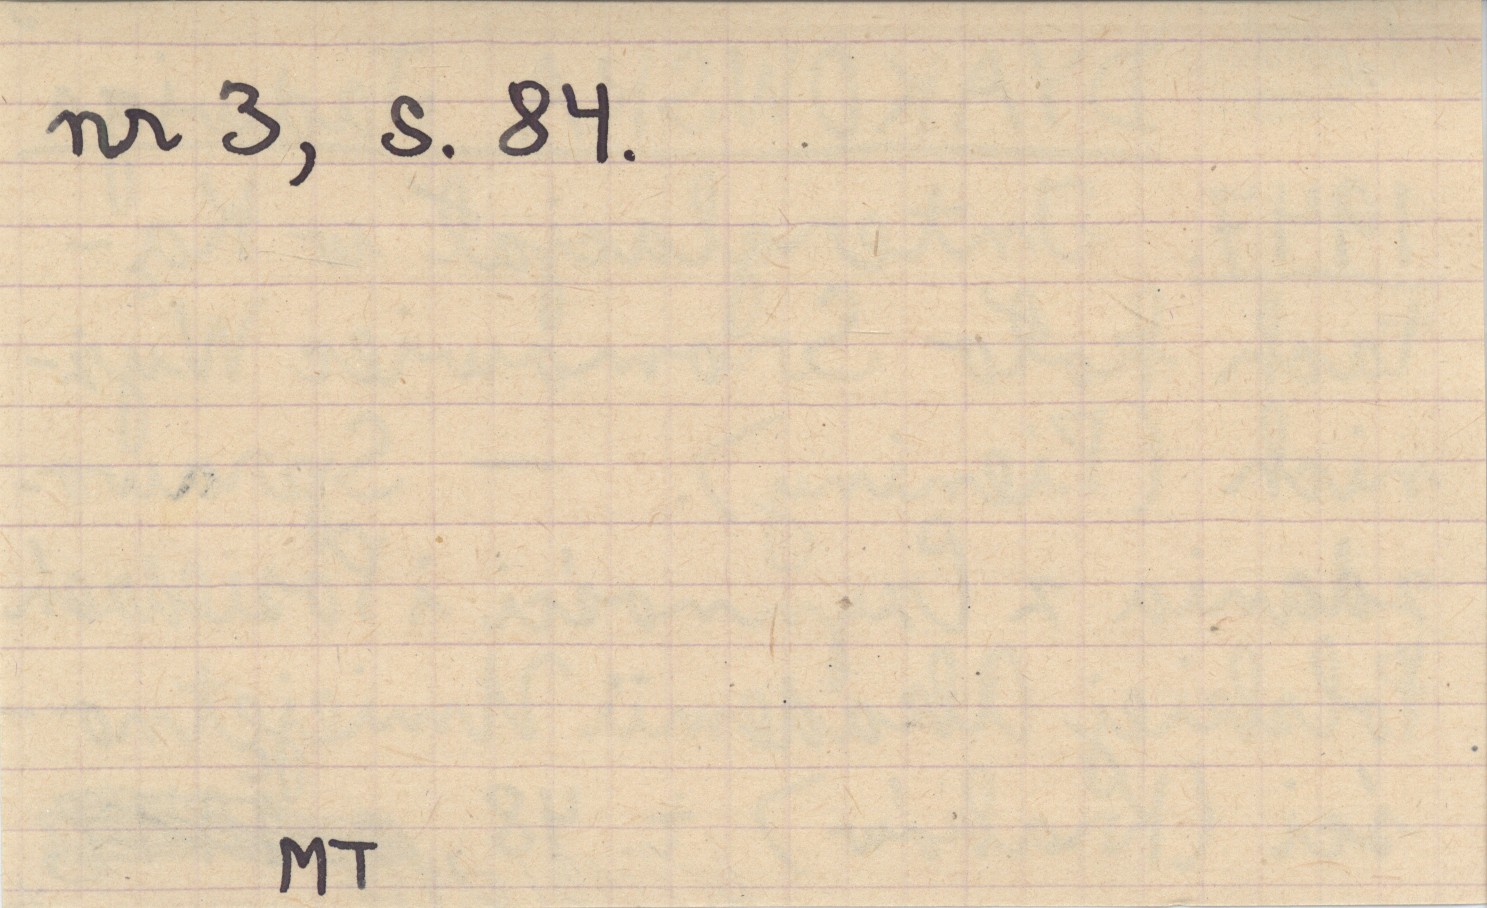 nr 3, s. 84.
MT